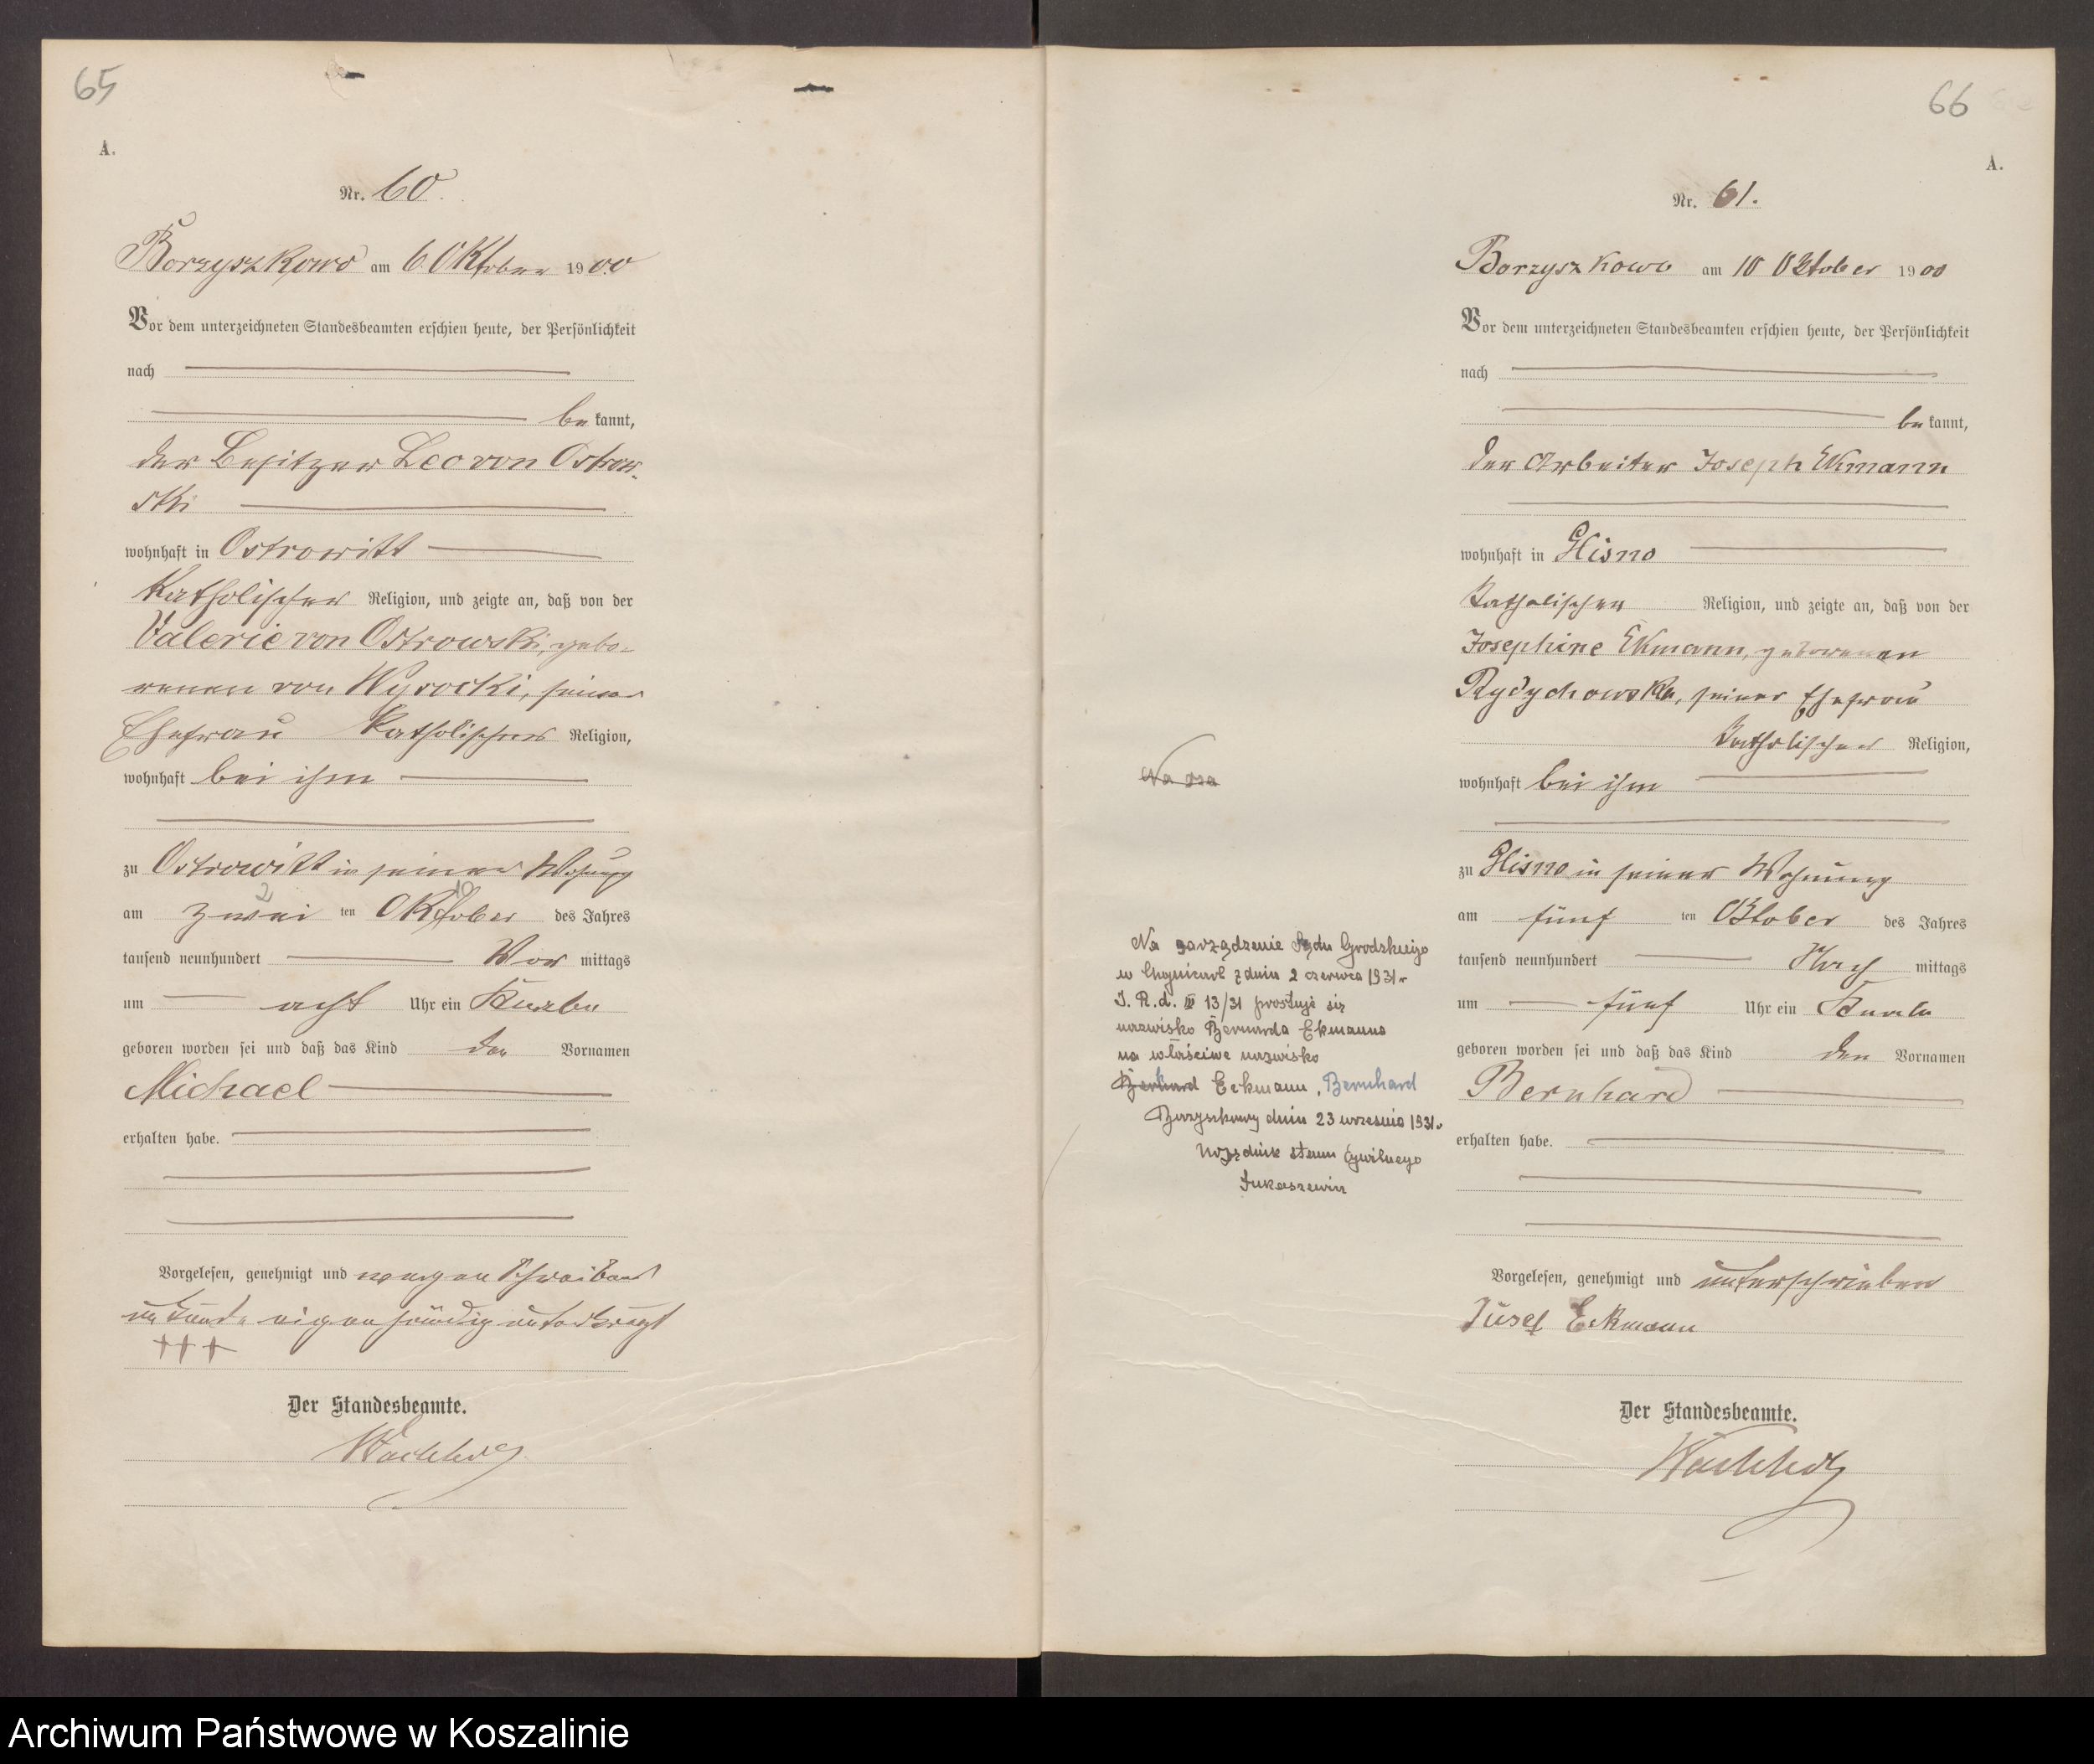 65
A.
Nr. 60.
Borzyszkowo am 6 Oktober 1900
Vor dem unterzeichneten Standesbeamten erschien heute, der Persönlichkeit
nach
be kannt,
der Besitzer Leo von Ostrow-
ski
wohnhaft in Ostrowitt
katholischer Religion, und zeigte an, daß von der
Valerie von Ostrowski, gebo-
renen von Wysocki, seiner
Ehefrau katholischer Religion,
wohnhaft bei ihm
zu Ostrowitt in seiner Wohnung
2 10
am zwei ten Oktober des Jahres
tausend neunhundert Vor mittags
um acht Uhr ein Knabe
geboren worden sei und daß das Kind den Vornamen
Michael
erhalten habe.
Vorgelesen, genehmigt und wegen Schreibens
unkunde eigenhändig unterkreuzt
+++
Der Standesbeamte.
Wachholz
66
A.
Nr. 61.
Borzyszkowo am 10 Oktober 1900
Vor dem unterzeichneten Standesbeamten erschien heute, der Persönlichkeit
nach
be kannt,
der Arbeiter Joseph Ekmann
wohnhaft in Glisno
katholischer Religion, und zeigte an, daß von der
Josephine Ekmann, geborenen
seiner Ehefrau
katholischer Religion,
wohnhaft bei ihm
zu Glisno in seiner Wohnung
am fünf ten Oktober des Jahres
tausend neunhundert Nach mittags
um fünf Uhr ein Knabe
geboren worden sei und daß das Kind den Vornamen
Bernhard
erhalten habe.
Vorgelesen, genehmigt und unterschrieben
Jusef Eckmann
Der Standesbeamte.
Wachholz
Na
Na zarządzenie Sądu Grodzkiego
w z dnia 2 czerwca 1931 r
J. R. d. III 13/31 prostuje się
nazwisko Bernarda Ekmanna
na właściwe nazwisko
Eckmann, Bernhard
dnia 23 września 1931 r
Urzędnik stanu cywilnego
Archiwum Państwowe w Koszalinie